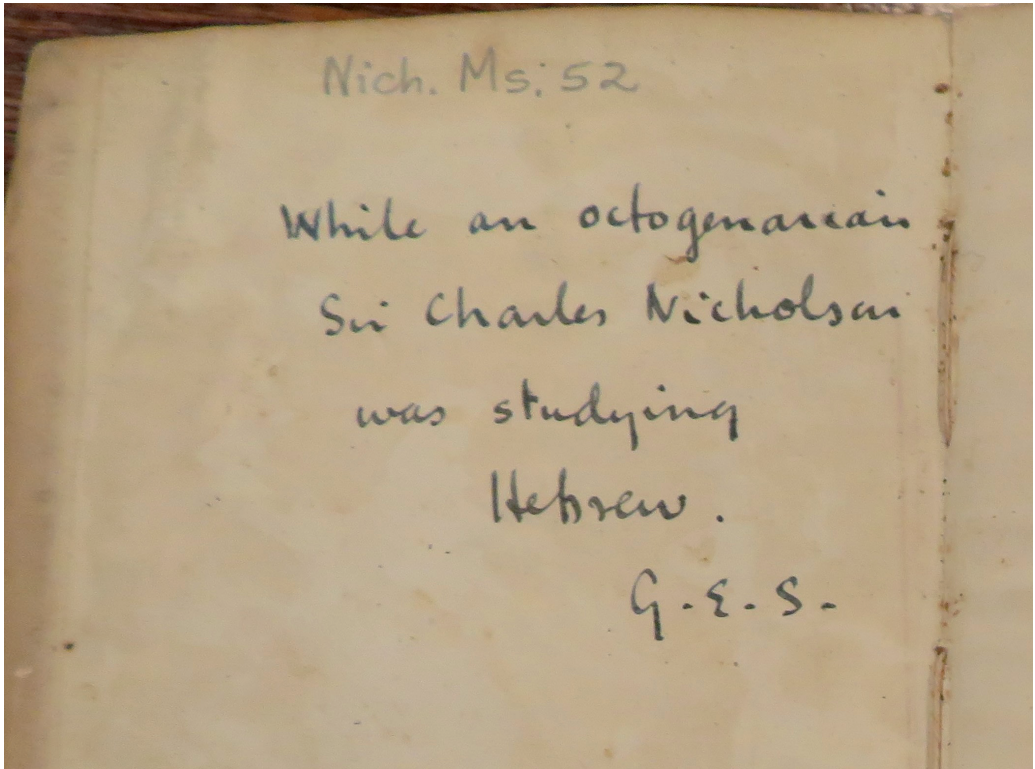 Nich. Ms. 52
While an octogenarian
Sir Charles Nicholson
was studying
Hebrew.
G.E.S.